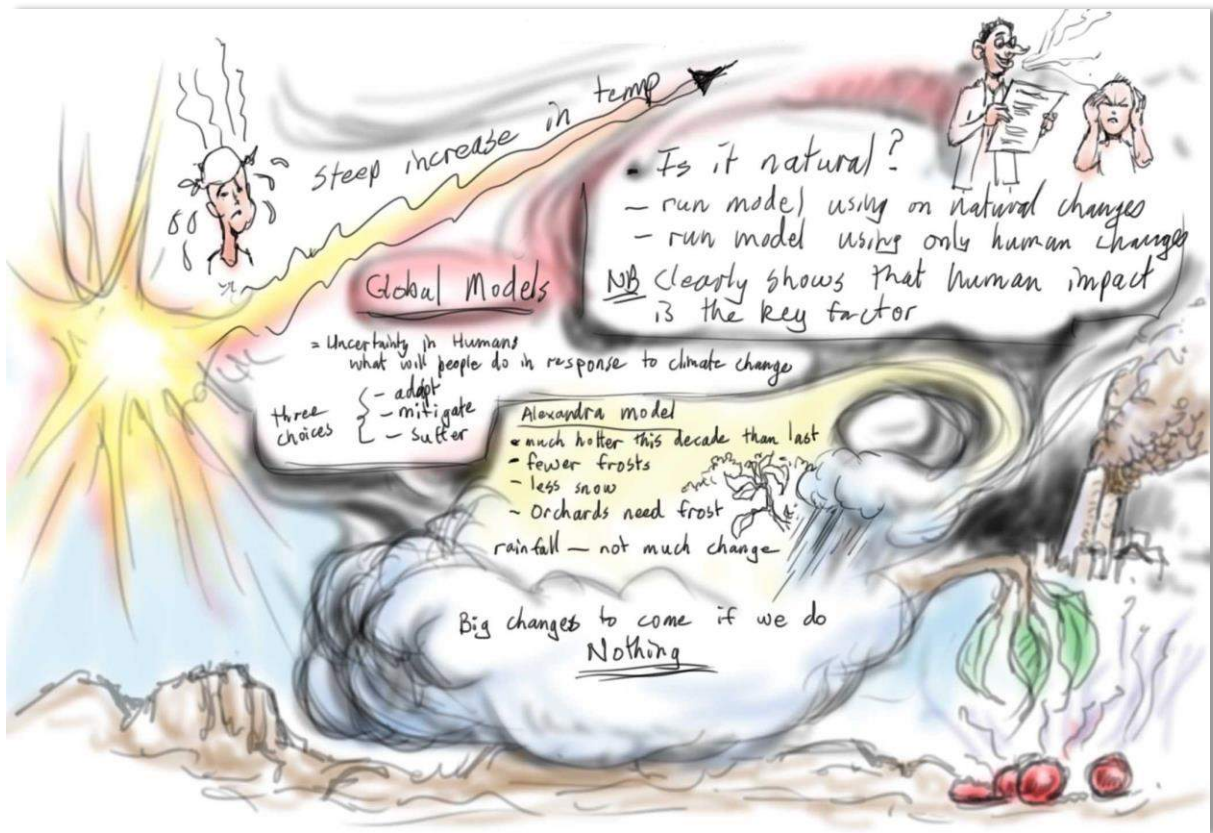 steep increase in temp
- Is it natural?
- run model using on natural changes
- run model using only human changes
NB clearly shows that human impact
is the key factor
Global Models
= Uncertainty in Humans
what will people do in response to climate change
three choices
- adapt
- mitigate
- suffer
Alexandra model
- much hotter this decade than last
- fewer frosts
- less snow
- Orchards need frost
rainfall - not much change
Big changes to come if we do
Nothing